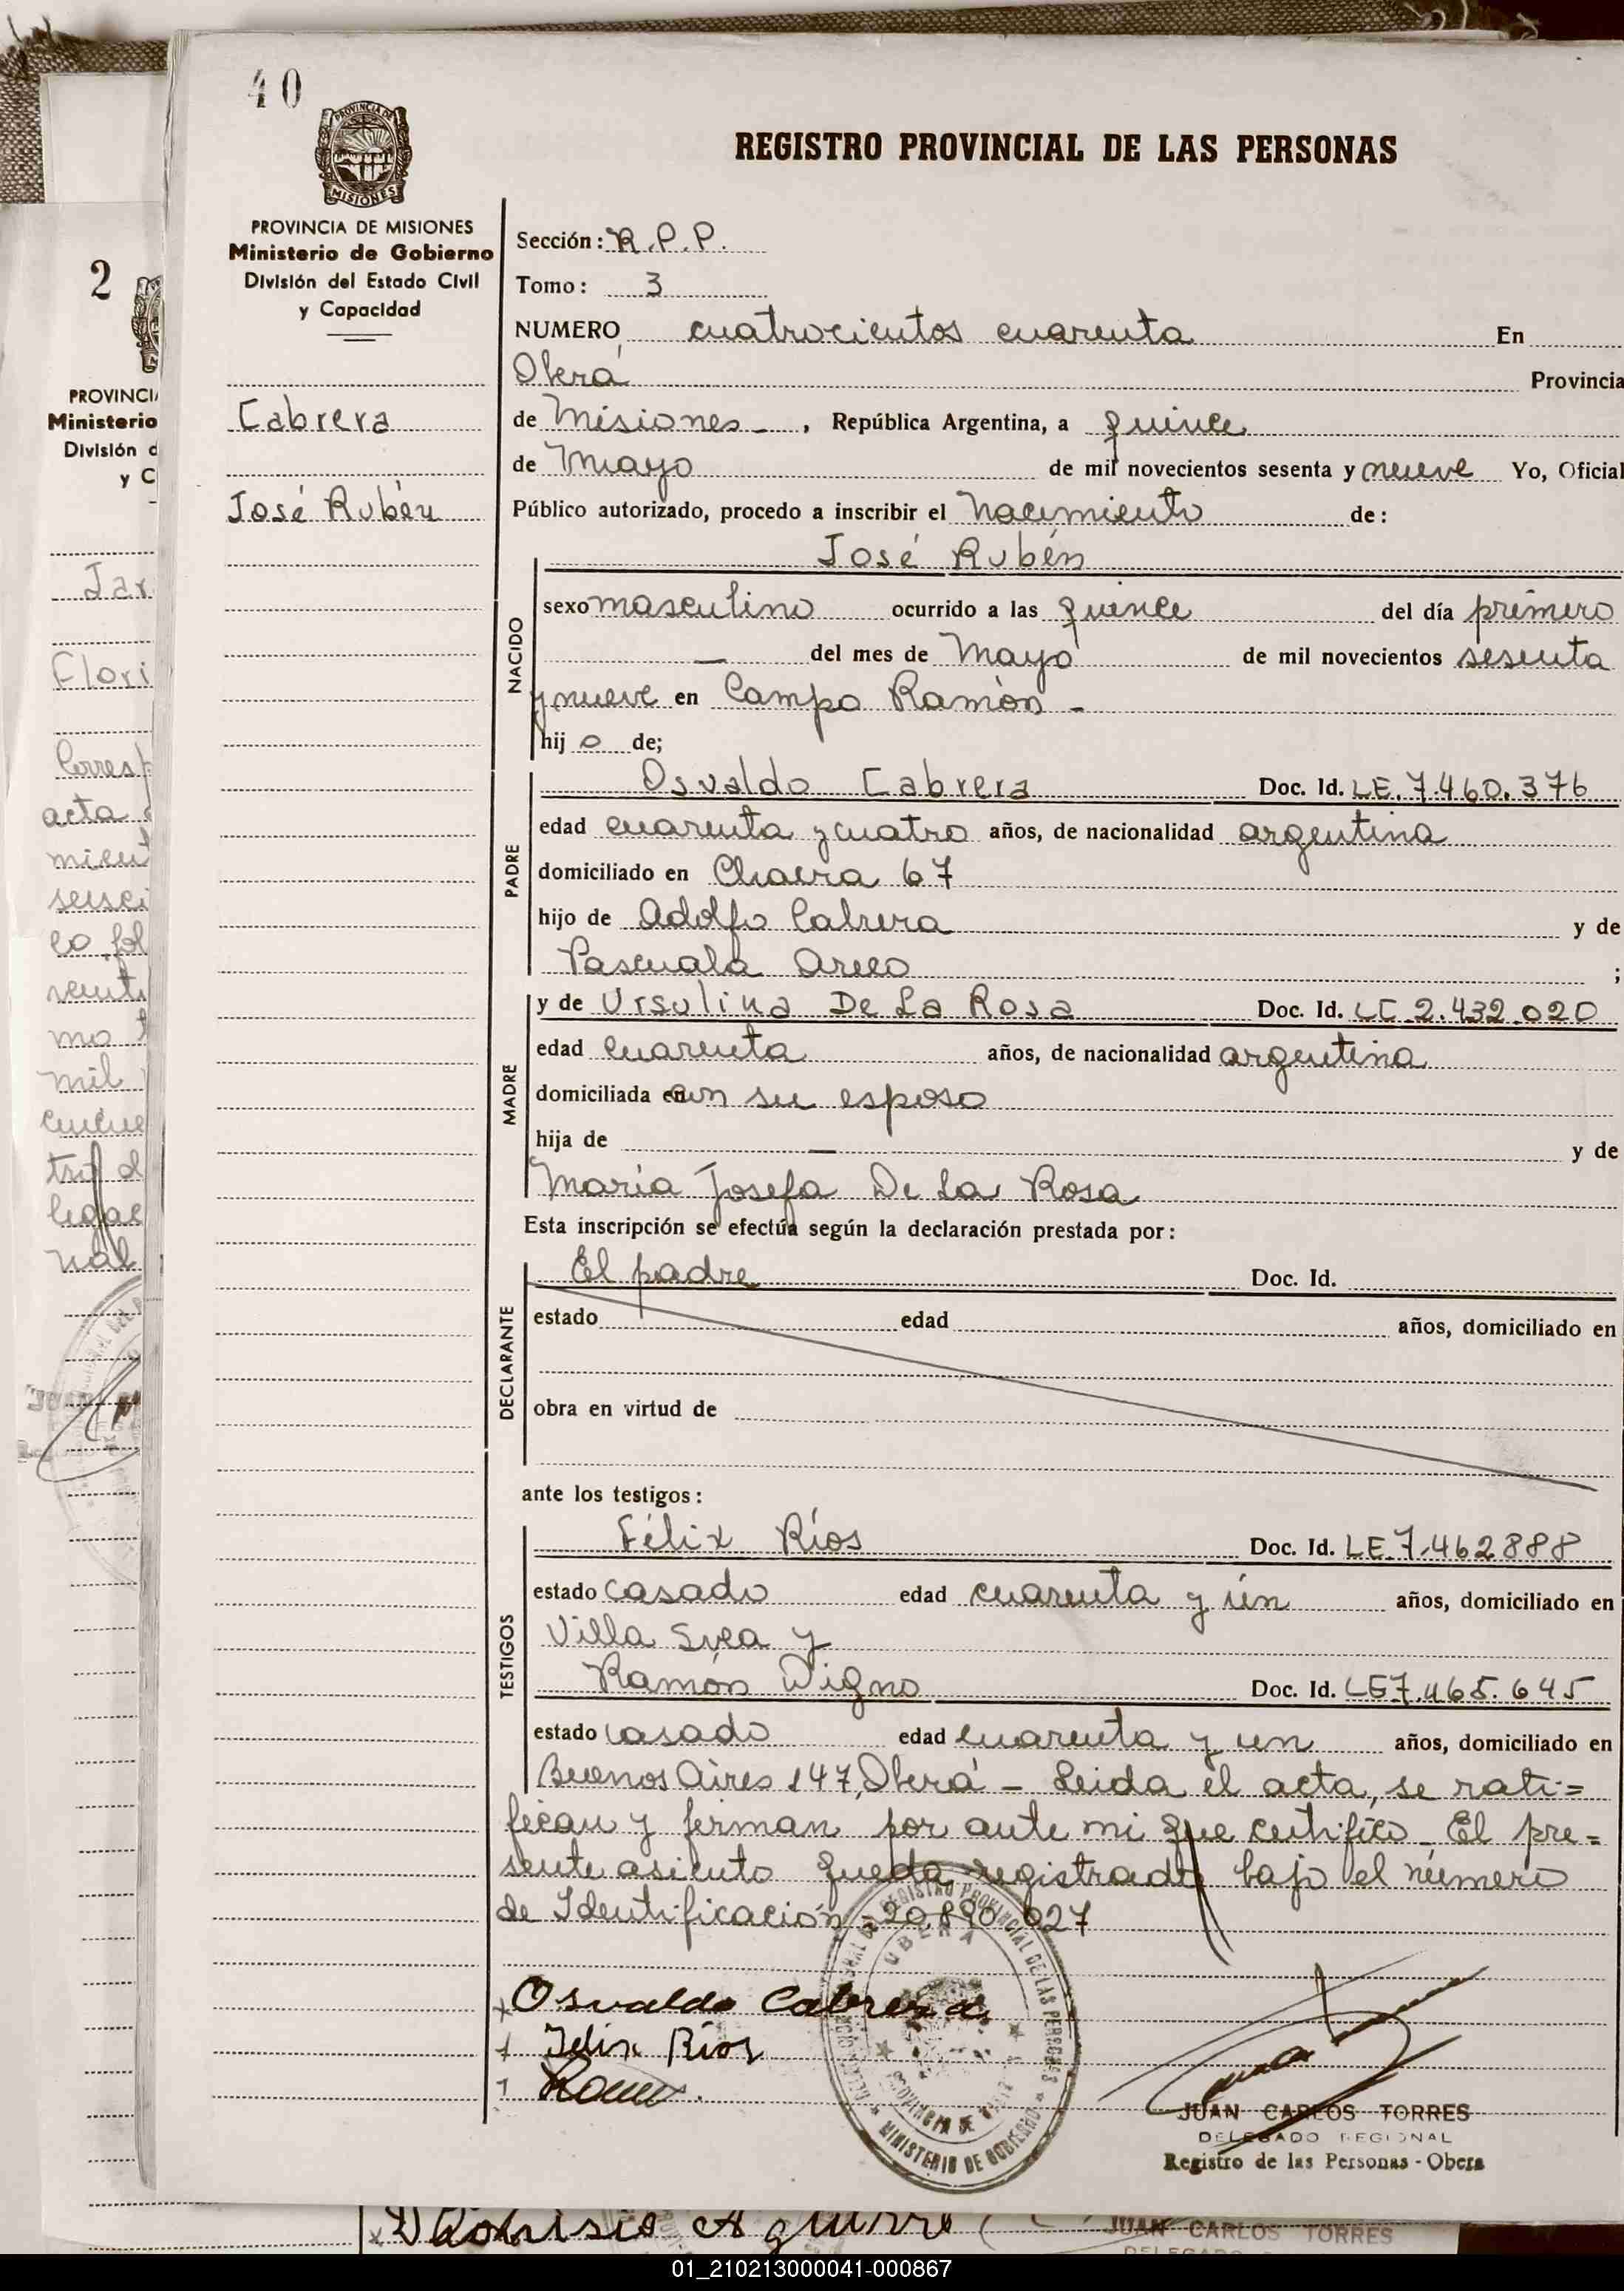 40
PROVINCIA DE MISIONES
Ministerio de Gobierno
División del Estado Civil
y Capacidad
Cabrera
José Rubén
REGISTRO PROVINCIAL DE LAS PERSONAS
Sección: R.P.P.
Tomo: 3
NUMERO cuatrocientos cuarenta En
Oberá Provincia
de Misiones , República Argentina, a quince
de Mayo de mil novecientos sesenta y nueve Yo, Oficial
Público autorizado, procedo a inscribir el Nacimiento de:
José Rubén
NACIDO
sexo masculino ocurrido a las quince del día primero
— del mes de Mayo de mil novecientos sesenta
y nueve en Campo Ramón -
hij o de;
PADRE
Osvaldo Cabrera Doc. Id. LE. 7.460.376
edad cuarenta y cuatro años, de nacionalidad argentina
domiciliado en Chacra 67
hijo de Adolfo Cabrera y de
Pascuala Areco ;
MADRE
y de Ursulina De La Rosa Doc. Id. LC 2.432.020
edad cuarenta años, de nacionalidad argentina
domiciliada con su esposo
hija de — y de
María Josefa De La Rosa
Esta inscripción se efectúa según la declaración prestada por:
DECLARANTE
El padre Doc. Id.
estado edad años, domiciliado en
obra en virtud de
ante los testigos:
TESTIGOS
Félix Ríos Doc. Id. LE.7.462888
estado casado edad cuarenta y ún años, domiciliado en
Villa Svea y
Ramón Digno Doc. Id. LE7.465.645
estado casado edad cuarenta y un años, domiciliado en
Buenos Aires 147, Oberá - Leida el acta, se rati=
fican y firman por ante mi que certifico - El pre=
sente asiento queda registrado bajo el número
de Identificación - 20.890.027
Osvaldo Cabrera
Felix Ríos
JUAN CARLOS TORRES
DELEGADO REGIONAL
Registro de las Personas - Obera
REGISTRO PROVINCIAL DE LAS PERSONAS
OBERA
PROVINCIA DE
MINISTERIO DE GOBIERNO
2
PROVINCI
Ministerio
División d
y C
Flori
acta
mil
JUAN CARLOS TORRES
01_210213000041-000867